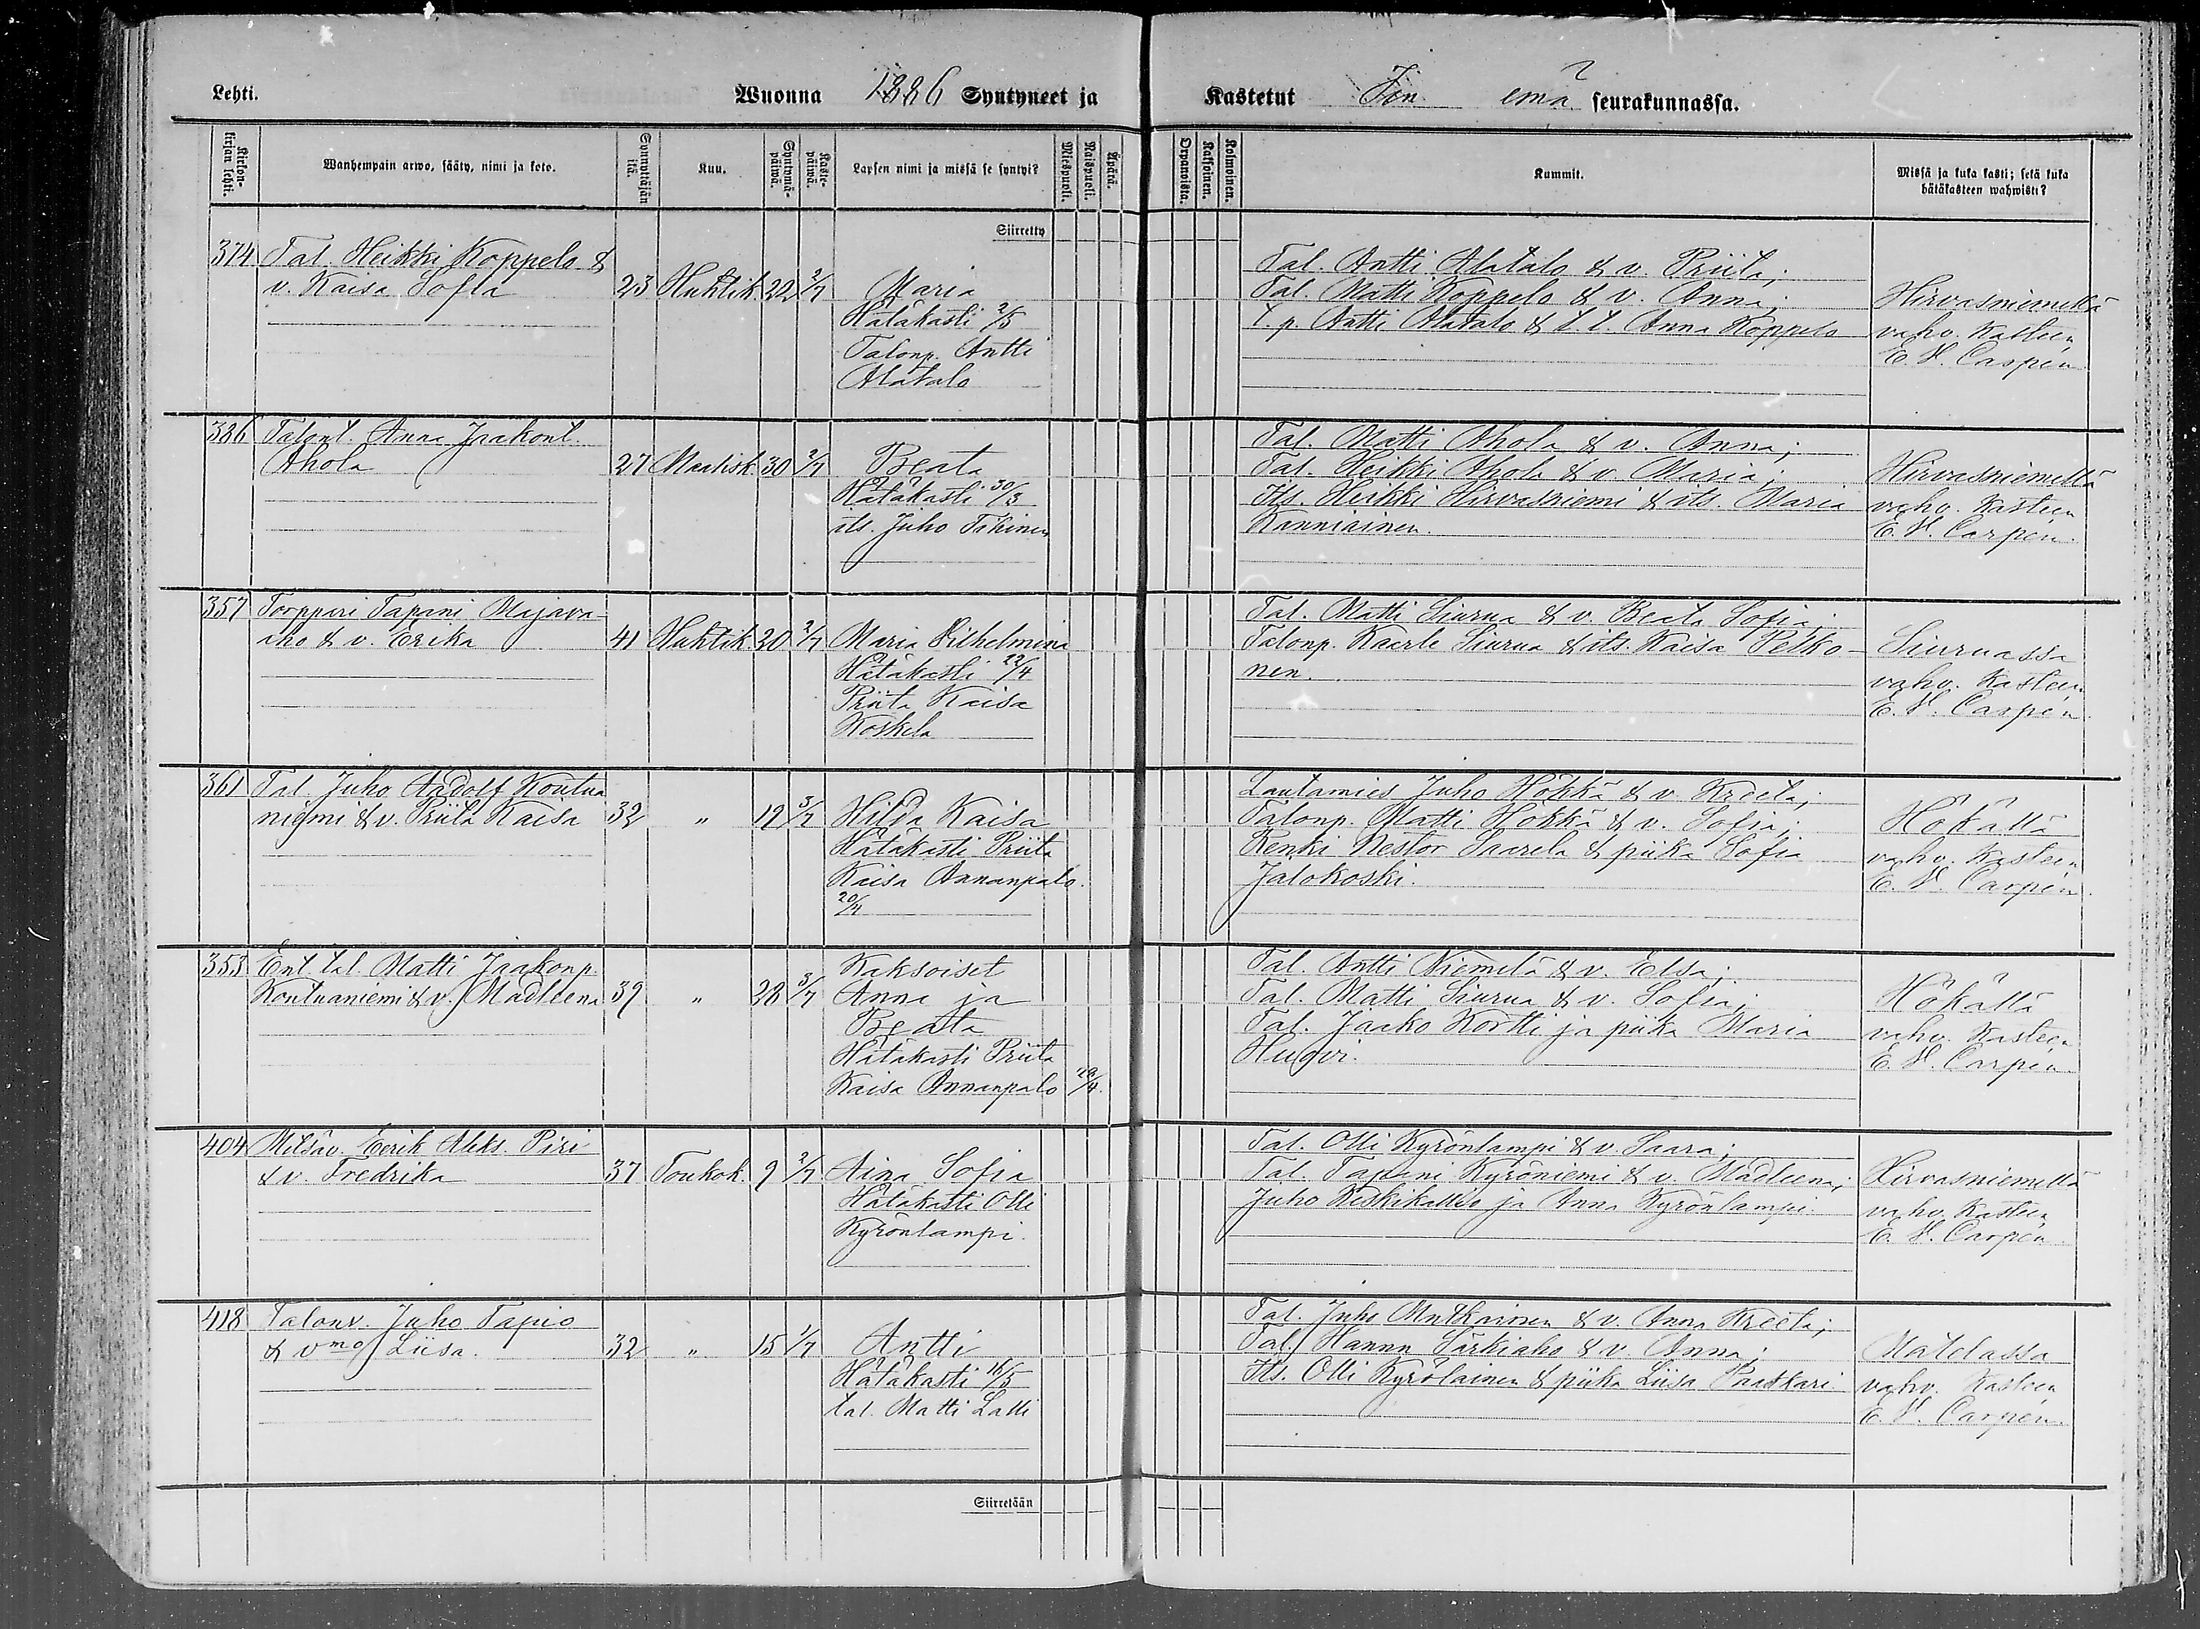 Lehti. Wuonna 1886 Syntyneet ja Kastetut Iin emä seurakunnassa.
Kirkonkirjan lehti. Wanhempain arwo, sääty, nimi ja koto. Synnyttäjän ikä. Kuu. Syntymäpäiwä. Kastepäiwä. Lapsen nimi ja missä se syntyi? Miespuoli. Naispuoli. Äpärä. Orpanoista. Kaksoinen. Kolmoinen. Kummit. Missä ja kuka kasti; sekä kuka hätäkasteen wahwisti?
Siirretty
374 Tal. Heikki Koppelo &
v. Kaisa Sofia 23 Huhtik. 22 2/7 Maria
Hätäkasti 2/5
Talonp. Antti
Alatalo
Tal. Antti Alatalo & v. Priita;
Tal. Matti Koppelo & v. Anna;
t. p. Antti Alatalo & t. t. Anna Koppelo
Hirvasniemellä
vahv. kasteen
E. V. Carpén.
386 Talont. Anna Jaakont.
Ahola 27 Maalisk. 30 2/7 Beata
Hätäkasti 30/3
its. Juho Tihinen
Tal. Matti Ahola & v. Anna;
Tal. Heikki Ahola & v. Maria;
Its. Heikki Hirvasniemi & its. Maria
Kanniainen.
Hirvasniemellä
vahv. kasteen
E. V. Carpén.
357 Torppari Tapani Majava-
aho & v. Erika 41 Huhtik. 20 2/7 Maria Vilhelmina
Hätäkasti 22/4
Priita Kaisa
Koskela
Tal. Matti Siurua & v. Beata Sofia;
Talonp. Kaarle Siurua & its. Kaisa Pelko-
nen.
Siuruassa
vahv. kasteen
E. V. Carpén.
361 Tal. Juho Aadolf Kontua
niemi & v. Priita Kaisa 32 " 19 3/7 Hilda Kaisa
Hätäkasti Priita
Kaisa Annanpalo.
20/4
Lautamies Juho Hökkä & v. Kreeta;
Talonp. Matti Hökkä & v. Sofia;
Renki Nestor Saarela & piika Sofia
Jalokoski.
Hökällä
vahv. kasteen
E. V. Carpén.
353 Ent. tal. Matti Jaakonp.
Kontuaniemi & v. Madleena 39 " 28 3/7 Kaksoiset
Anna ja
Beata
Hätäkasti Priita
Kaisa Annanpalo 29/4.
Tal. Antti Niemelä & v. Elsa;
Tal. Matti Siurua & v. Sofia;
Tal. Jaako Kortti ja piika Maria
Hugvi.
Hökällä
vahv. kasteen
E. V. Carpén.
404 Metsäv. Eerik Aleks. Piri
& v. Fredrika 37 Toukok. 9 2/7 Aina Sofia
Hätäkasti Olli
Kyrönlampi.
Tal. Olli Kyrönlampi & v. Saara;
Tal. Tapani Kyröniemi & v. Madleena;
Juho Keskikallio ja Anna Kyrönlampi.
Hirvasniemellä
vahv. kasteen
E. V. Carpén.
418 Talonv. Juho Tapio
& vmo Liisa. 32 " 15 1/7 Antti
Hätäkasti 16/5
tal. Matti Lalli
Tal. Juho Anna Kreeta;
Tal. Hannu Särkiaho & v. Anna;
Its. Olli Kyröläinen & piika Liisa Paaskari
Matolassa
vahv. kasteen
E. V. Carpén.
Siirretään